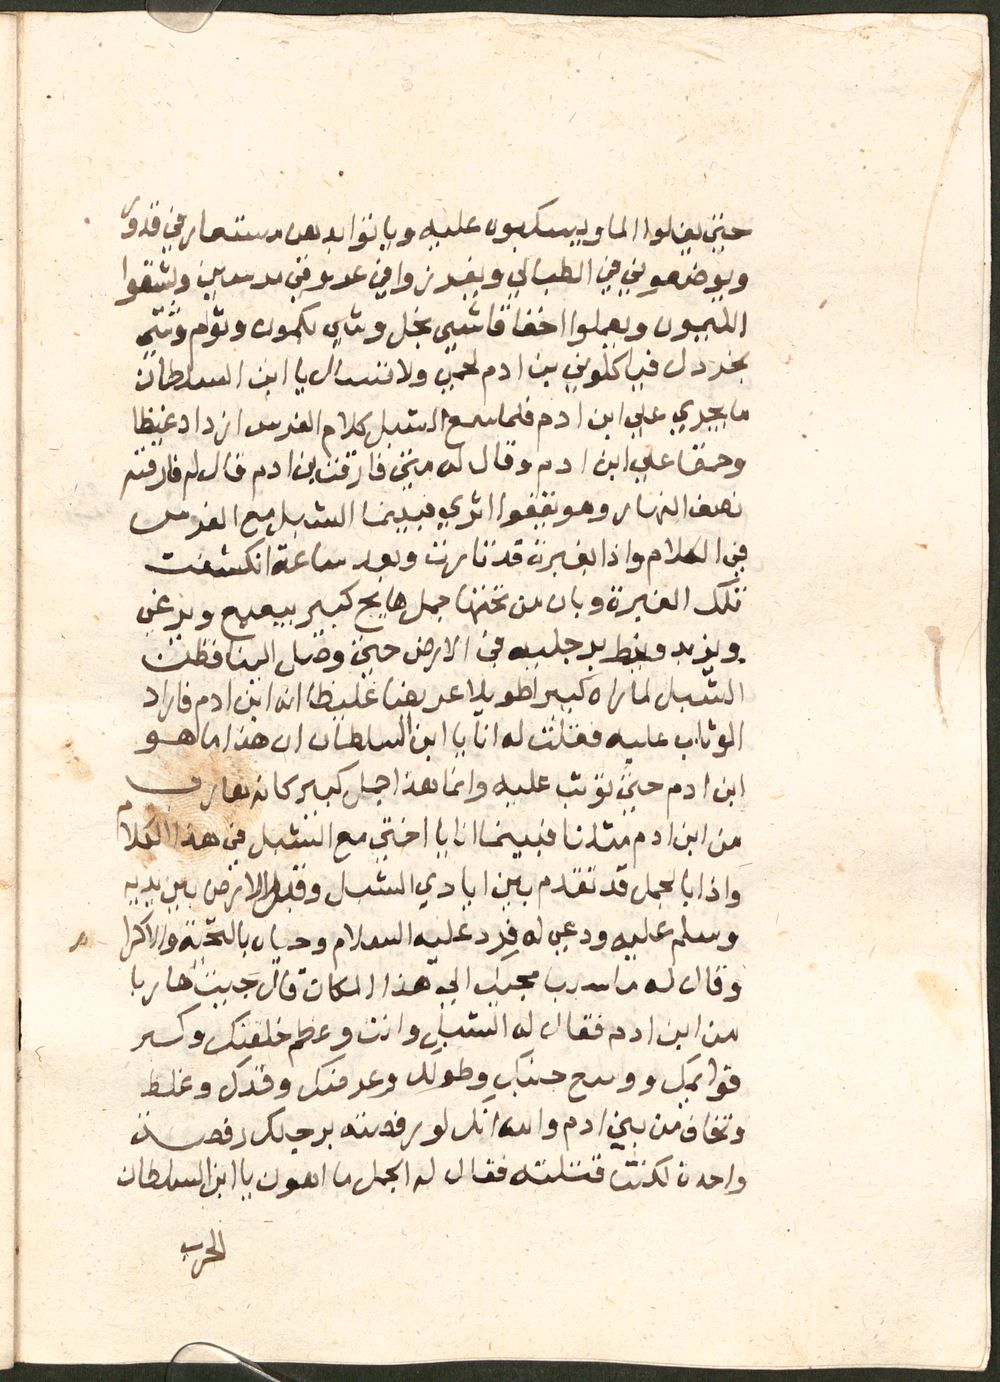 حتي يغلوا الماء ويسكبون عليه ويا توابد هن مستعار في قدور
ويوضعوني في الطبالي ويفدزوا في عدو في مدسين ويشقوا
الليمون ويعملوا اخفافا شي بخل وشي بكمون وثوم وشي
بخردل فياكلوني بن ادم لحمي ولا تسال يا ابن السلطان
ما يجري علي ابن ادم فلما سمع الشبل كلام الفرس ازداد غيظا
وحمقا علي ابن ادم وقال له متي فارقت بن ادم قال له فارقته
نصف النهار وهو يقفوا اثري فبينما الشبل مع الفرس
في الكلام واذا بغبرة قد ثارت وبعد ساعة انكشفت
تلك الغبرة وبان من تحتها جمل هايج كبير يبعبع ويرغي
ويزبد ويخط برجليه في الارض حتي وصل الينا فظن
الشبل لما راه كبيرا طويلا عريضا غليظا انه ابن ادم فاراد
الوثاب عليه فقلت له انا يا ابن السلطان ان هذا ما هو
ابن ادم حتي توثب عليه وانما هذا جمل كبير كانه هارب
من ابن ادم مثلنا فبينما انا يا اختي مع الشبل في هذا الكلام
واذا بالجمل قد تقدم بين ايادي الشبل وقبل الارض بين يديه
وسلم عليه ودعي له فرد عليه السلام وحياه بالتحية والاكرام
وقال له ما سبب مجيك الي هذا المكان قال جيت هاربا
من ابن ادم فقال له الشبل وانت وعظم خلقتك وكبر
قوايمك ووسع حنكك وطولك وعرضك وقدك وغلظ
وتخاف من بني ادم والله انك لو رفصته برجلك رفصة
واحدة لكنت قتلته فقال له الجمل ما اهون يا ابن السلطان
الحرب